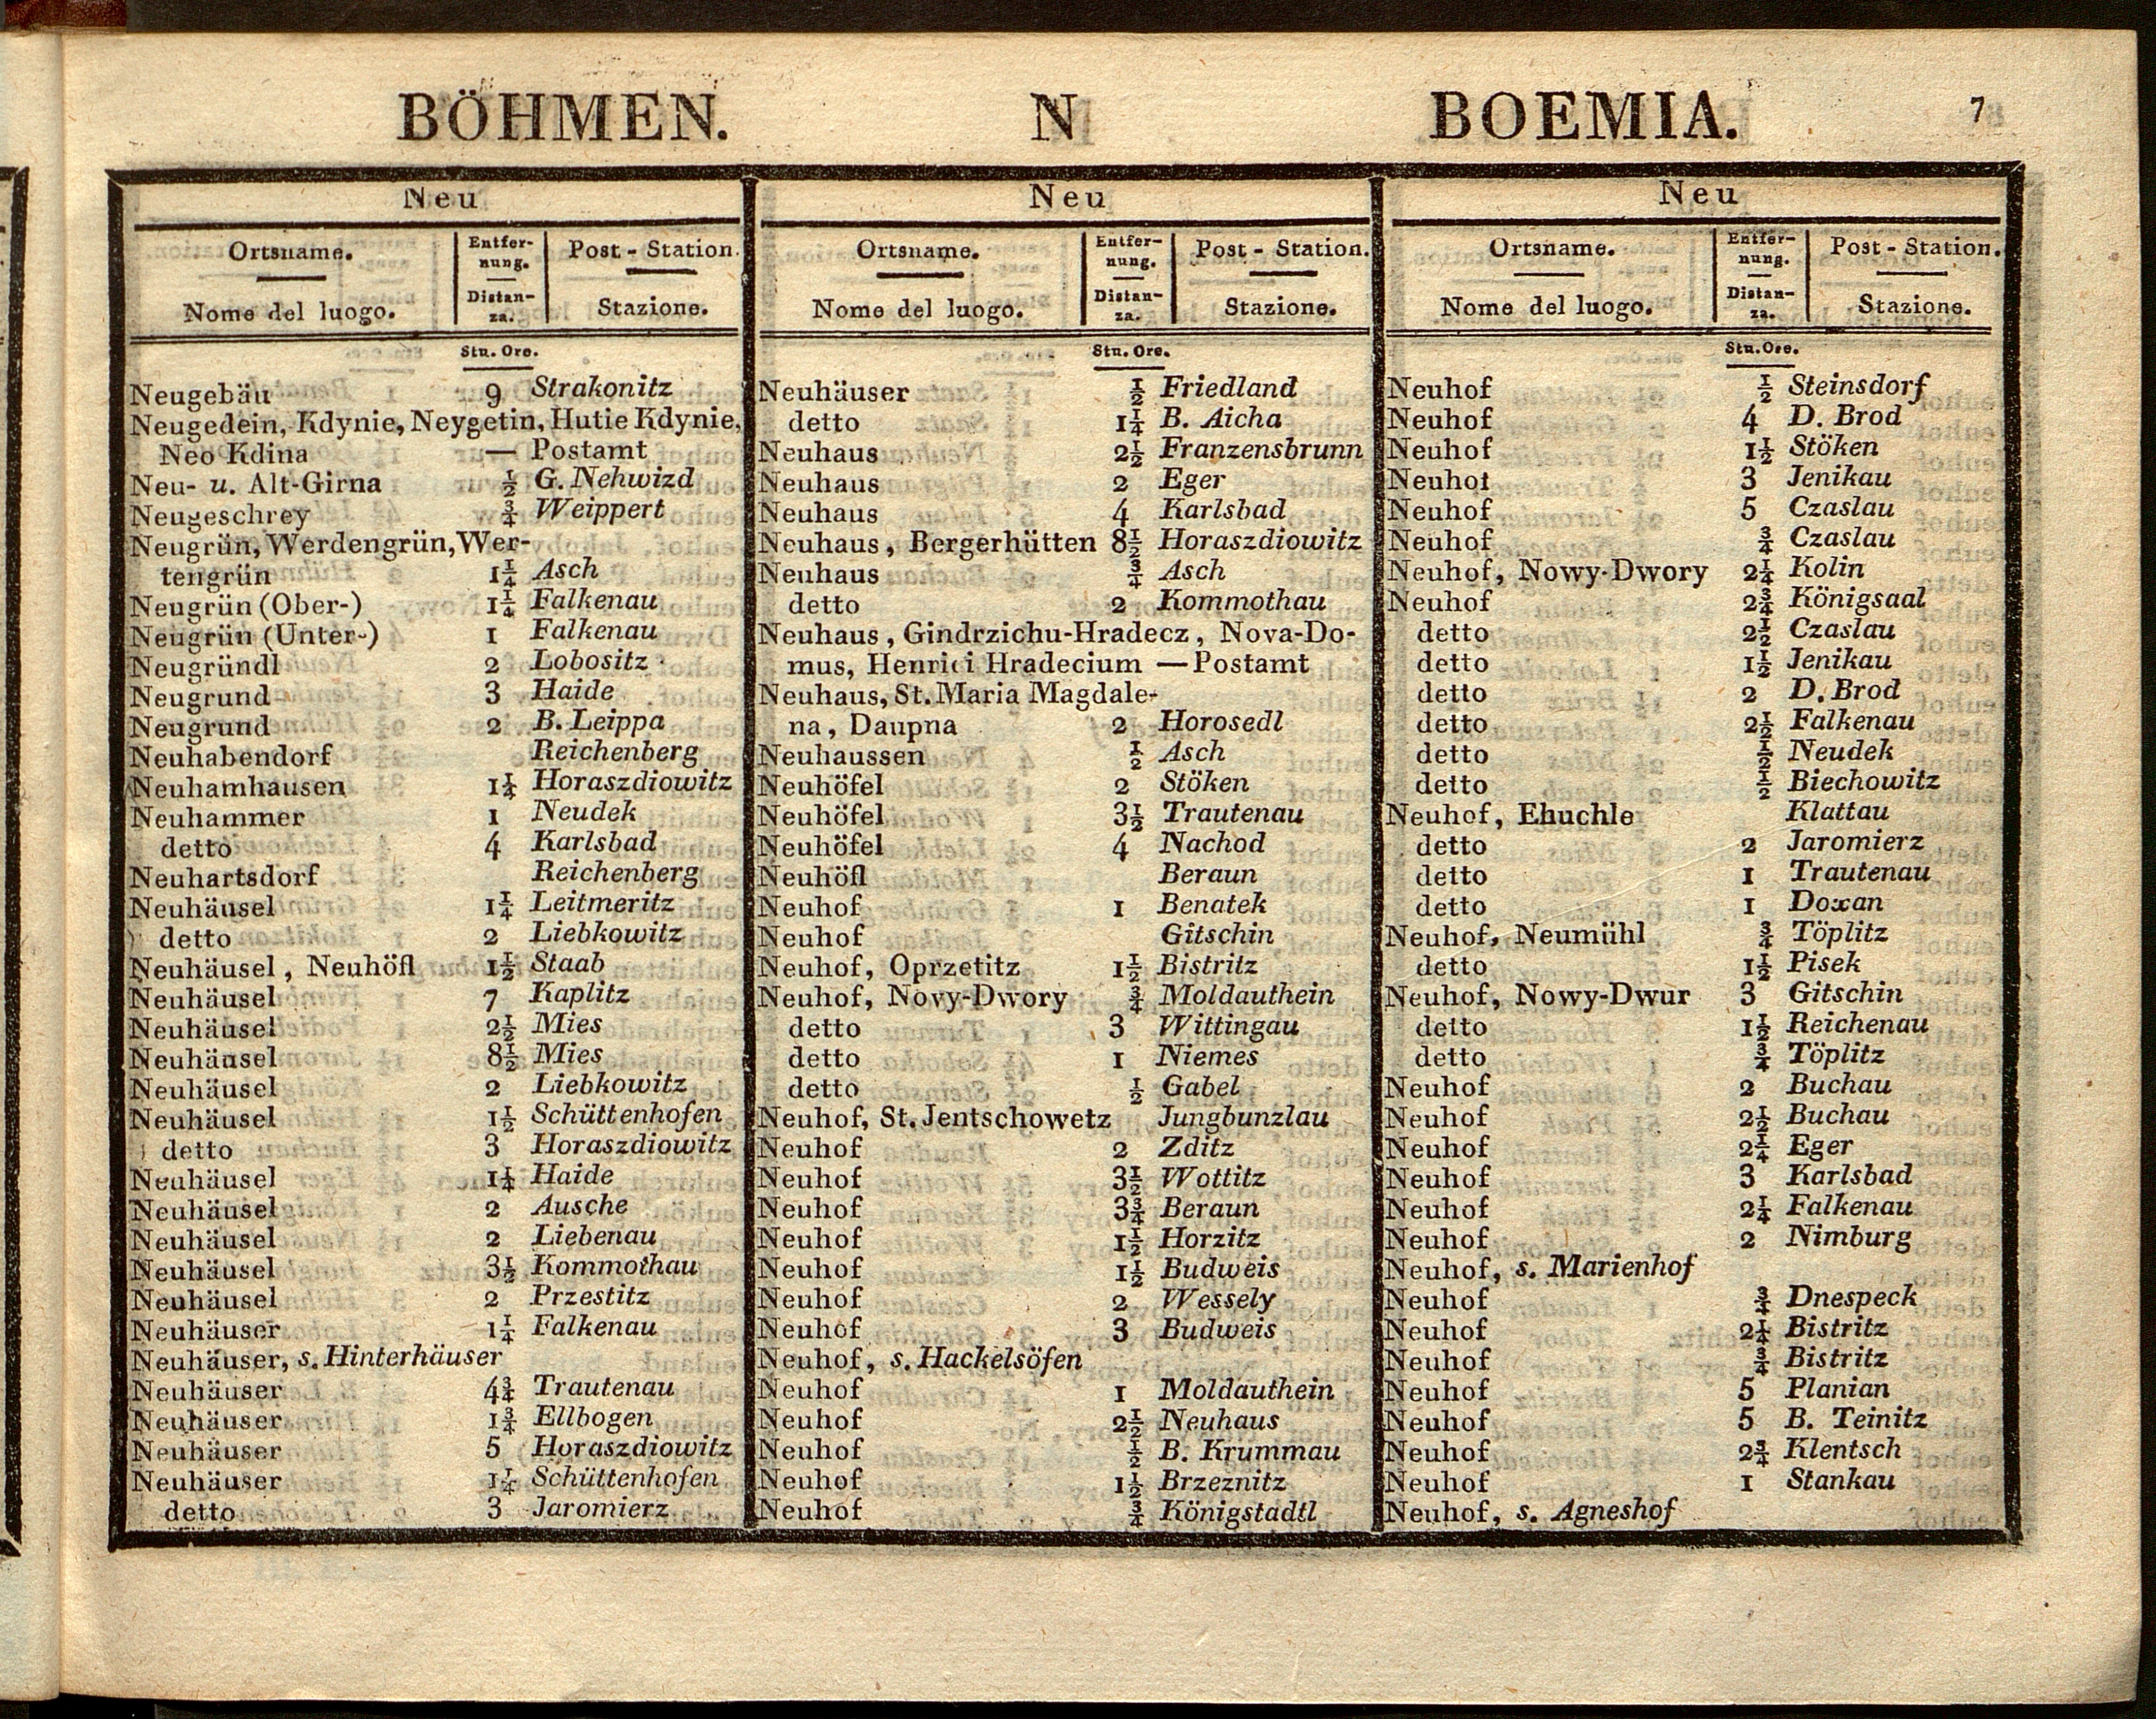 BÖHMEN. N BOEMIA. 7
Neu
Ortsname. Entfer- Post - Station.
nung.
Nome del luogo. Distan- Stazione.
za.
Stn. Ore.
Neugebäu 9 Strakonitz
Neugedein, Kdynie, Neygetin, Hutie Kdynie,
Neo Kdina — Postamt
Neu- u. Alt-Girna ½ G. Nehwizd
Neugeschrey ¾ Weippert
Neugrün, Werdengrün, Wer-
tengrün 1¼ Asch
Neugrün (Ober-) 1¼ Falkenau
Neugrün (Unter-) 1 Falkenau
Neugründl 2 Lobositz
Neugrund 3 Haide
Neugrund 2 B. Leippa
Neuhabendorf Reichenberg
Neuhamhausen 1¼ Horaszdiowitz
Neuhammer 1 Neudek
detto 4 Karlsbad
Neuhartsdorf Reichenberg
Neuhäusel 1¼ Leitmeritz
detto 2 Liebkowitz
Neuhäusel, Neuhöfl 1½ Staab
Neuhäusel 7 Kaplitz
Neuhäusel 2½ Mies
Neuhäusel 8½ Mies
Neuhäusel 2 Liebkowitz
Neuhäusel 1½ Schüttenhofen
detto 3 Horaszdiowitz
Neuhäusel 1¼ Haide
Neuhäusel 2 Ausche
Neuhäusel 2 Liebenau
Neuhäusel 3½ Kommothau
Neuhäusel 2 Przestitz
Neuhäuser 1¼ Falkenau
Neuhäuser, s. Hinterhäuser
Neuhäuser 4¾ Trautenau
Neuhäuser 1¾ Ellbogen
Neuhäuser 5 Horaszdiowitz
Neuhäuser 1¼ Schüttenhofen
detto 3 Jaromierz
Neu
Ortsname. Entfer- Post - Station.
nung.
Nome del luogo. Distan- Stazione.
za.
Stn. Ore.
Neuhäuser ½ Friedland
detto 1¼ B. Aicha
Neuhaus 2½ Franzensbrunn
Neuhaus 2 Eger
Neuhaus 4 Karlsbad
Neuhaus, Bergerhütten 8½ Horaszdiowitz
Neuhaus ¾ Asch
detto 2 Kommothau
Neuhaus, Gindrzichu-Hradecz, Nova-Do-
mus, Henrici Hradecium — Postamt
Neuhaus, St. Maria Magdale-
na, Daupna 2 Horosedl
Neuhaussen ½ Asch
Neuhöfel 2 Stöken
Neuhöfel 3½ Trautenau
Neuhöfel 4 Nachod
Neuhöfl Beraun
Neuhof 1 Benatek
Neuhof Gitschin
Neuhof, Oprzetitz 1½ Bistritz
Neuhof, Novy-Dwory ¾ Moldauthein
detto 3 Wittingau
detto 1 Niemes
detto ½ Gabel
Neuhof, St. Jentschowetz Jungbunzlau
Neuhof 2 Zditz
Neuhof 3½ Wottitz
Neuhof 3¾ Beraun
Neuhof 1½ Horzitz
Neuhof 1½ Budweis
Neuhof 2 Wessely
Neuhof 3 Budweis
Neuhof, s. Hackelsöfen
Neuhof 1 Moldauthein
Neuhof 2½ Neuhaus
Neuhof ½ B. Krummau
Neuhof 1½ Brzeznitz
Neuhof ¾ Königstadtl
Neu
Ortsname. Entfer- Post - Station.
nung.
Nome del luogo. Distan- Stazione.
za.
Stn. Ore.
Neuhof ½ Steinsdorf
Neuhof 4 D. Brod
Neuhof 1½ Stöken
Neuhof 3 Jenikau
Neuhof 5 Czaslau
Neuhof ¾ Czaslau
Neuhof, Nowy-Dwory 2¼ Kolin
Neuhof 2¾ Königsaal
detto 2½ Czaslau
detto 1½ Jenikau
detto 2 D. Brod
detto 2½ Falkenau
detto ½ Neudek
detto ½ Biechowitz
Neuhof, Ehuchle Klattau
detto 2 Jaromierz
detto 1 Trautenau
detto 1 Doxan
Neuhof, Neumühl ¾ Töplitz
detto 1½ Pisek
Neuhof, Nowy-Dwur 3 Gitschin
detto 1½ Reichenau
detto ¾ Töplitz
Neuhof 2 Buchau
Neuhof 2½ Buchau
Neuhof 2¼ Eger
Neuhof 3 Karlsbad
Neuhof 2¼ Falkenau
Neuhof 2 Nimburg
Neuhof, s. Marienhof
Neuhof ¾ Dnespeck
Neuhof 2¼ Bistritz
Neuhof ¾ Bistritz
Neuhof 5 Planian
Neuhof 5 B. Teinitz
Neuhof 2¾ Klentsch
Neuhof 1 Stankau
Neuhof, s. Agneshof